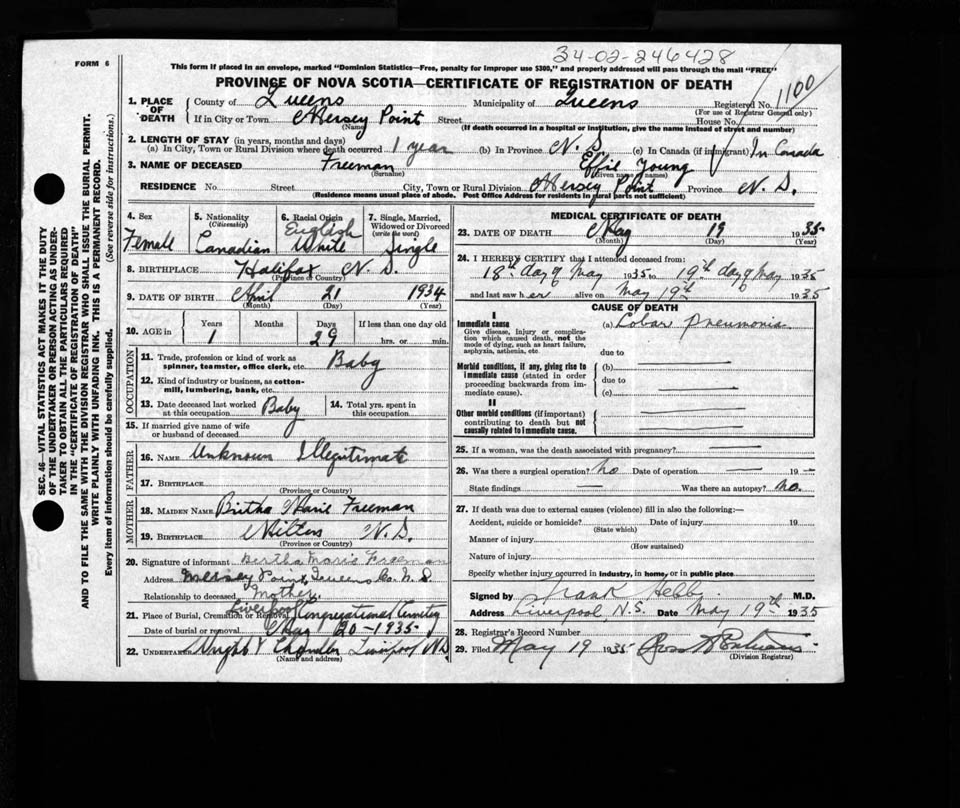 34-02-246428
FORM 6
This form if placed in an envelope, marked "Dominion Statistics—Free, penalty for improper use $300," and properly addressed will pass through the mail "FREE"
PROVINCE OF NOVA SCOTIA—CERTIFICATE OF REGISTRATION OF DEATH
1100
SEC. 46—VITAL STATISTICS ACT MAKES IT THE DUTY
OF THE UNDERTAKER OR PERSON ACTING AS UNDER-
TAKER TO OBTAIN ALL THE PARTICULARS REQUIRED
IN THE "CERTIFICATE OF REGISTRATION OF DEATH"
AND TO FILE THE SAME WITH THE DIVISION REGISTRAR WHO SHALL ISSUE THE BURIAL PERMIT.
WRITE PLAINLY WITH UNFADING INK. THIS IS A PERMANENT RECORD.
Every item of information should be carefully supplied. (See reverse side for instructions.)
1. PLACE OF DEATH
County of Queens Municipality of Queens Registered No.
(For use of Registrar General only)
If in City or Town Mersey Point Street House No.
(Name) (If death occurred in a hospital or institution, give the name instead of street and number)
2. LENGTH OF STAY (in years, months and days)
(a) In City, Town or Rural Division where death occurred 1 year (b) In Province N.S. (c) In Canada (if immigrant) In Canada
3. NAME OF DECEASED Freeman Effie Young
(Surname) (Given name or names)
RESIDENCE No. Street City, Town or Rural Division Mersey Point Province N.S.
(Residence means usual place of abode. Post Office Address for residents in rural parts not sufficient)
4. Sex
Female
5. Nationality
(Citizenship)
Canadian
6. Racial Origin
English
White
7. Single, Married,
Widowed or Divorced
(write the word)
Single
8. BIRTHPLACE Halifax N.S.
(Province or Country)
9. DATE OF BIRTH April 21 1934
(Month) (Day) (Year)
10. AGE in Years Months Days If less than one day old
1 29 hrs. or min.
OCCUPATION
11. Trade, profession or kind of work as
spinner, teamster, office clerk, etc. Baby
12. Kind of industry or business, as cotton-
mill, lumbering, bank, etc.
13. Date deceased last worked
at this occupation Baby
14. Total yrs. spent in
this occupation
15. If married give name of wife
or husband of deceased
FATHER
16. NAME Unknown Illegitimate
17. BIRTHPLACE
(Province or Country)
MOTHER
18. MAIDEN NAME Birtha Marie Freeman
19. BIRTHPLACE Milton N.S.
(Province or Country)
20. Signature of informant Bertha Marie Freeman
Address Mersey Point, Queens Co. N.S.
Relationship to deceased Mother.
21. Place of Burial, Cremation or Removal Liverpool Congregational Cemetery
Date of burial or removal May 20-1935
22. UNDERTAKER Wright & Chandler Liverpool N.S.
(Name and address)
MEDICAL CERTIFICATE OF DEATH
23. DATE OF DEATH May 19 1935
(Month) (Day) (Year)
24. I HEREBY CERTIFY that I attended deceased from:
18th day of May 1935 to 19th day of May 1935
and last saw her alive on May 19th 1935
CAUSE OF DEATH
I
Immediate cause
Give disease, injury or complica-
tion which caused death, not the
mode of dying, such as heart failure,
asphyxia, asthenia, etc.
(a) Lobar Pneumonia
due to
Morbid conditions, if any, giving rise to
immediate cause (stated in order
proceeding backwards from im-
mediate cause).
(b)
due to
(c)
II
Other morbid conditions (if important)
contributing to death but not
causally related to immediate cause.
25. If a woman, was the death associated with pregnancy?
26. Was there a surgical operation? No Date of operation 19
State findings Was there an autopsy? No.
27. If death was due to external causes (violence) fill in also the following:—
Accident, suicide or homicide? Date of injury 19
(State which)
Manner of injury
(How sustained)
Nature of injury
Specify whether injury occurred in industry, in home, or in public place
Signed by Frank Hebb M.D.
Address Liverpool, N.S. Date May 19th 1935
28. Registrar's Record Number
29. Filed May 19 1935
(Division Registrar)